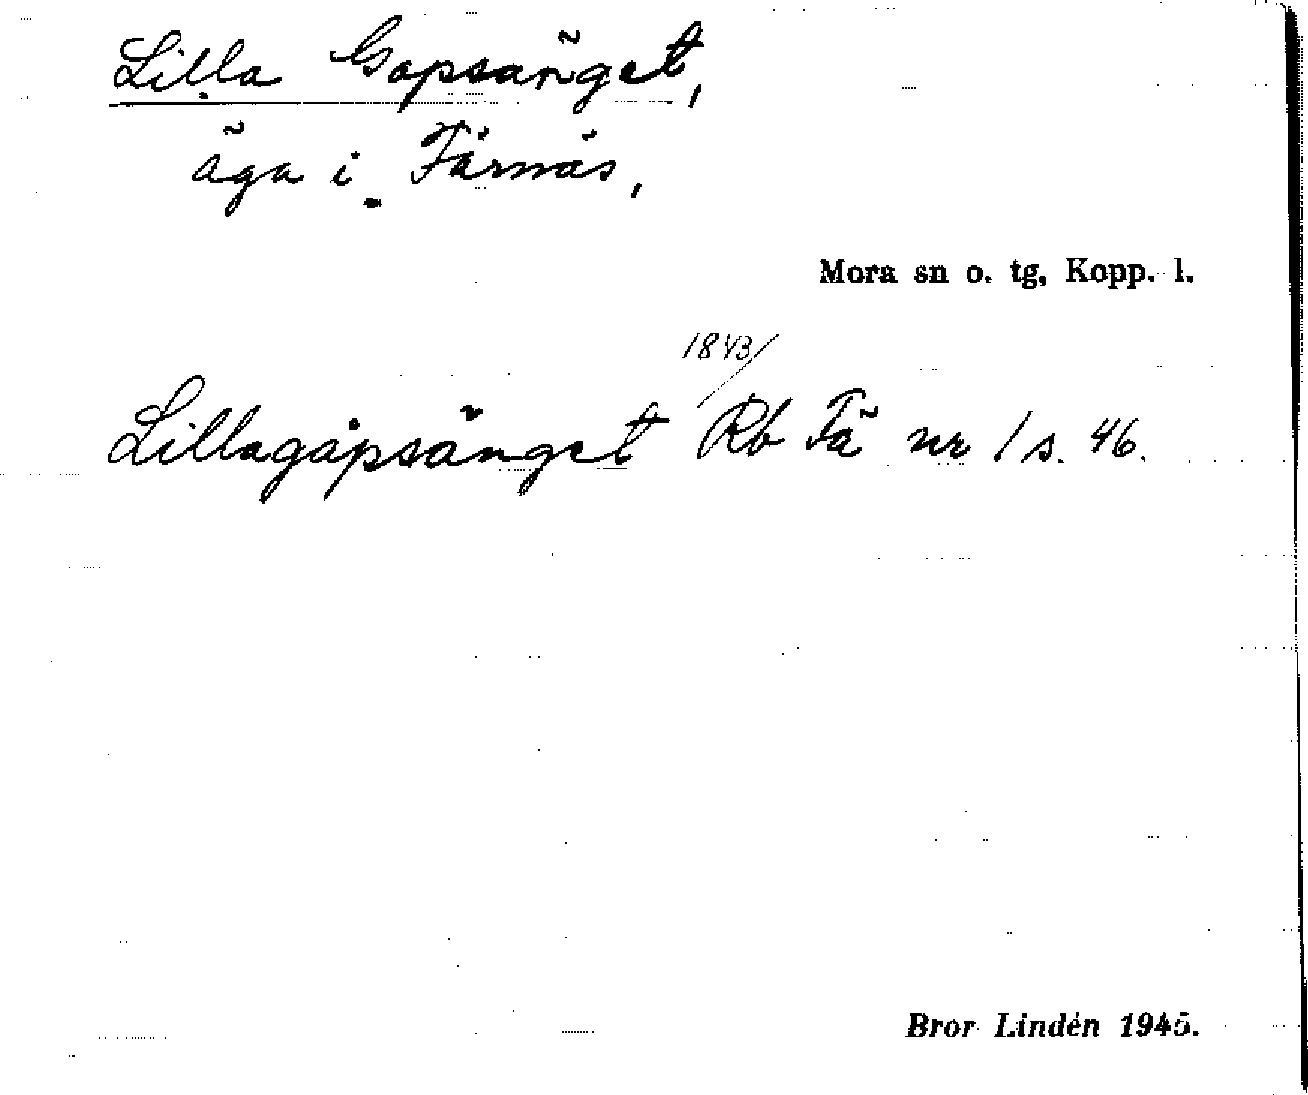 Lilla Gapsänget,
äga i Färnäs,
Mora sn o. tg, Kopp. l.
1843/
Lillagåpsänget Rb Fä nr 1 s. 46.
Bror Lindén 1945.